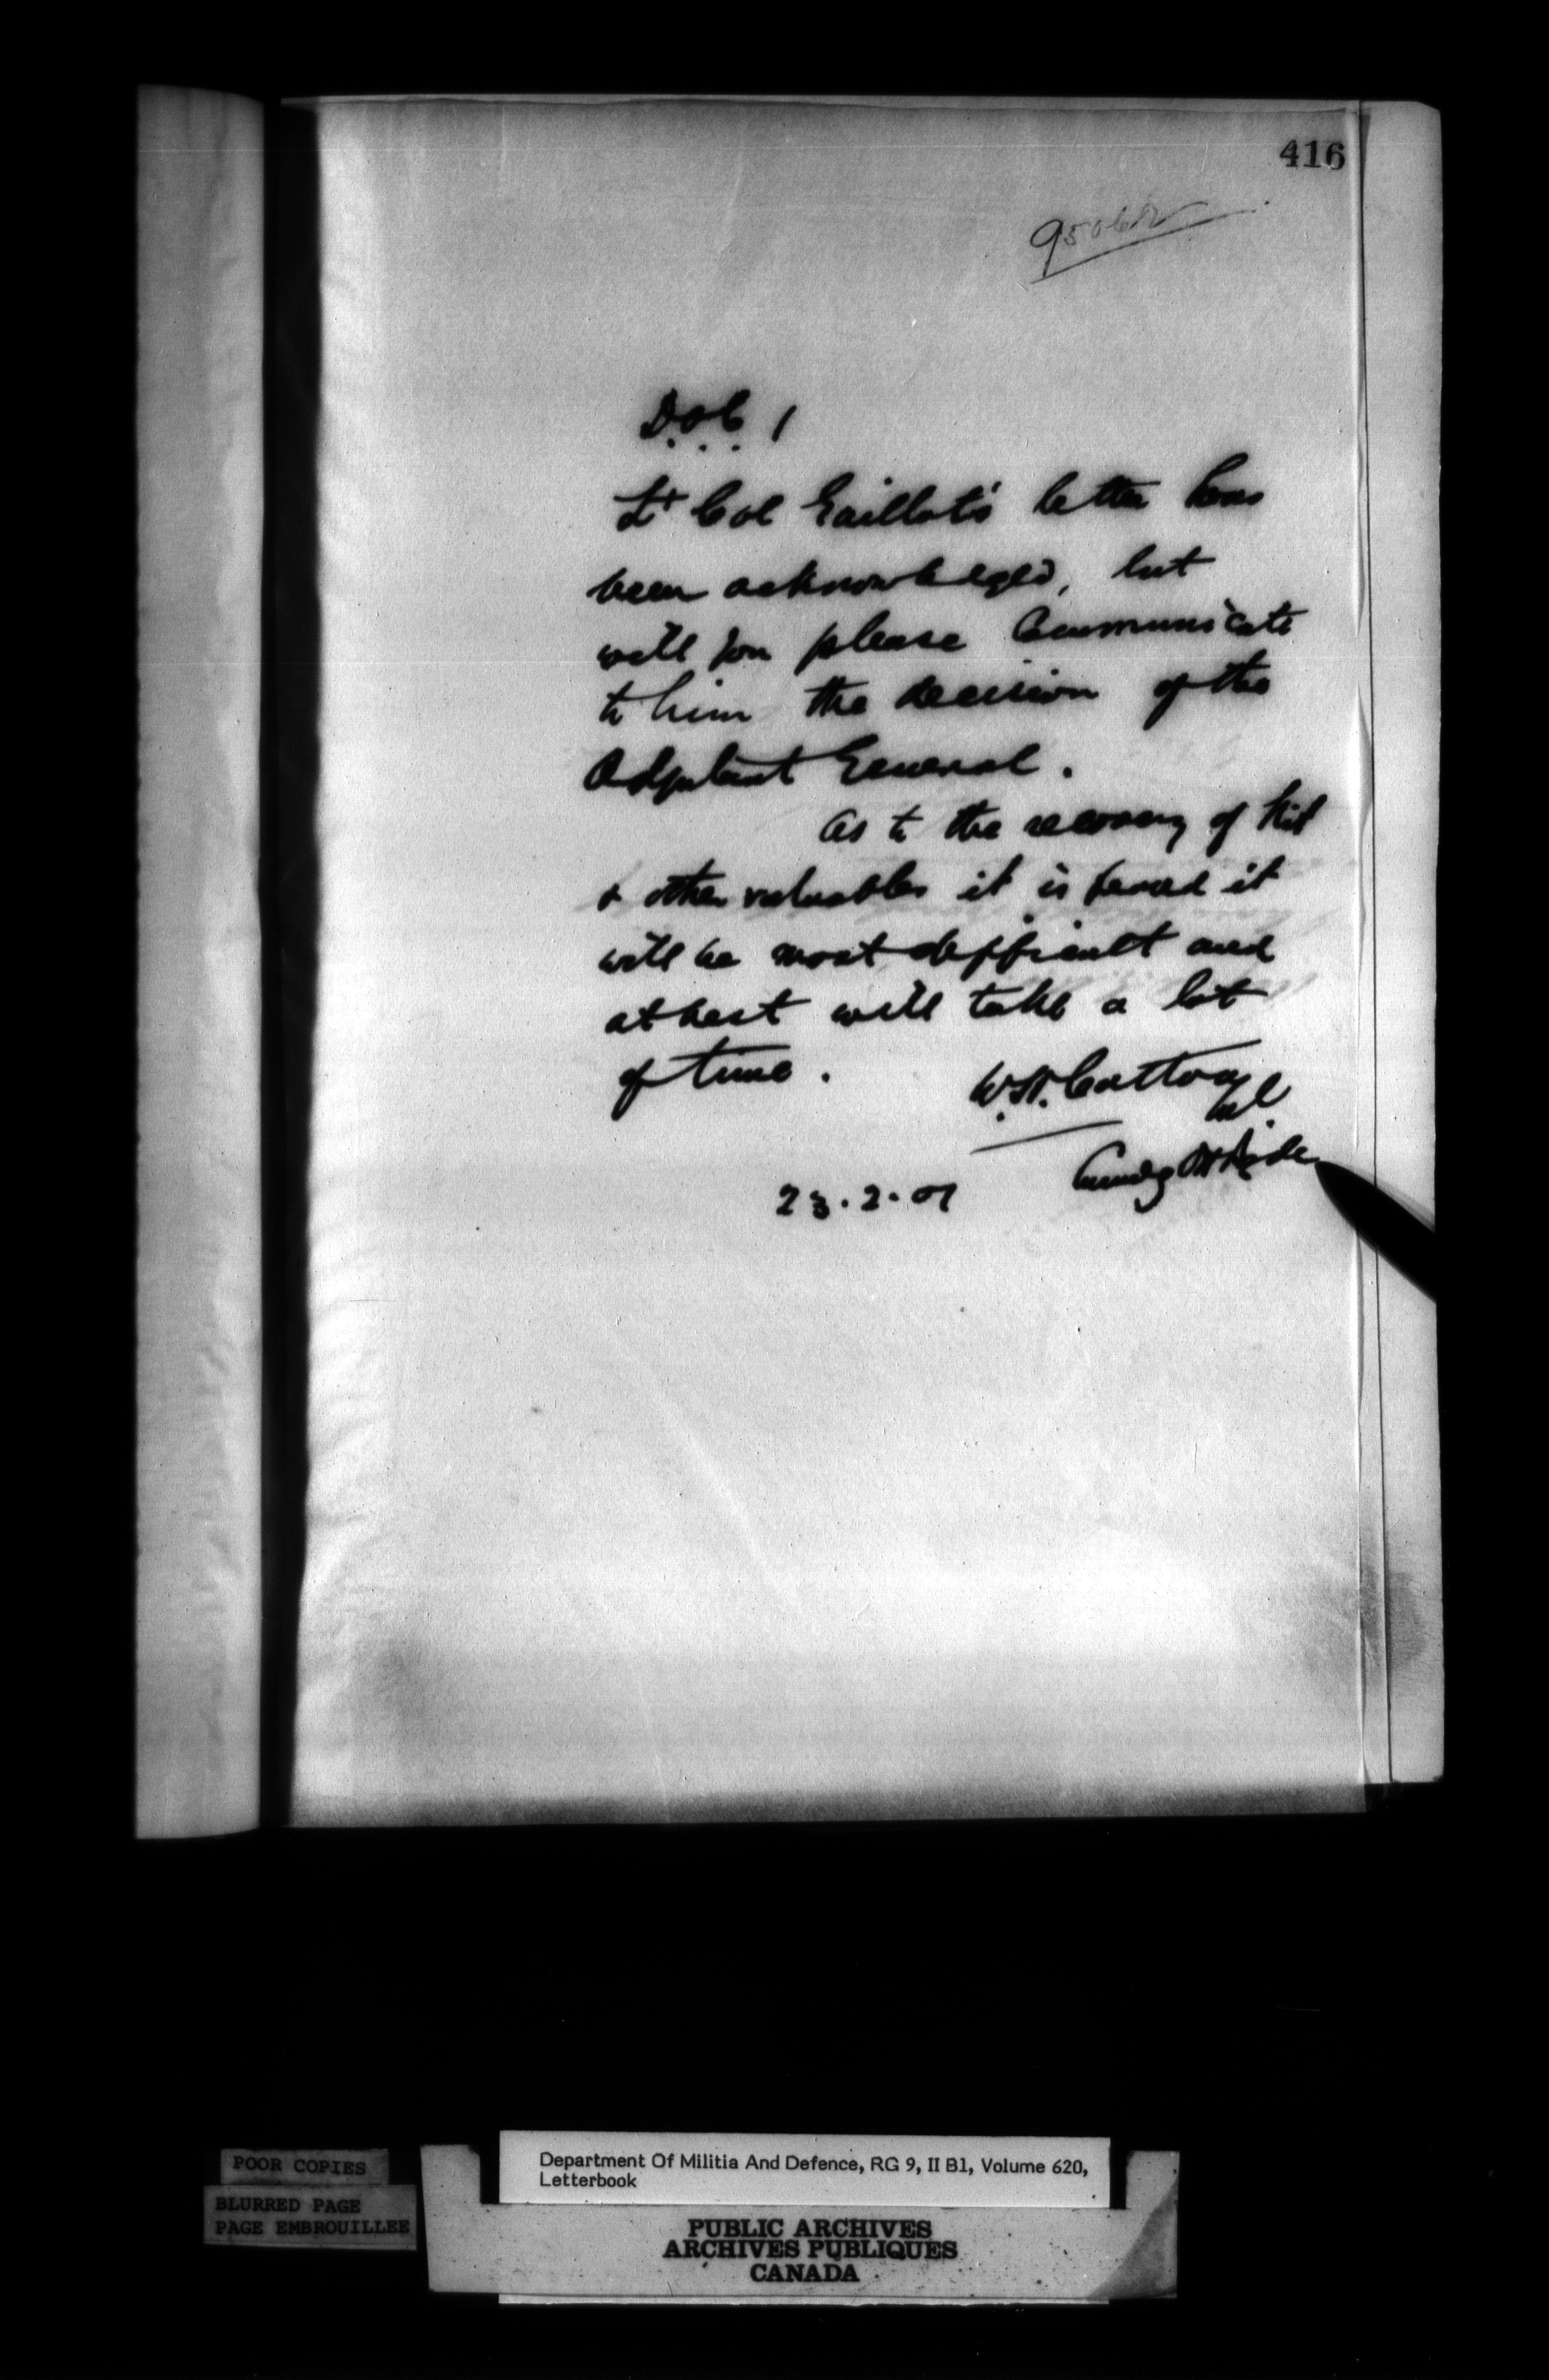 416
D.O.C. 1
Lt Col Gaillot's letter has
been acknowledged, but
will you please Communicate
to him the decision of the
Adjutant General.
As to the recovery of kit
& other valuables it is feared it
will be most difficult and
at best will take a lot
of time.
W.H. Cotton
23.2.01
POOR COPIES
BLURRED PAGE
PAGE EMBROUILLEE
Department Of Militia And Defence, RG 9, II B1, Volume 620,
Letterbook
PUBLIC ARCHIVES
ARCHIVES PUBLIQUES
CANADA